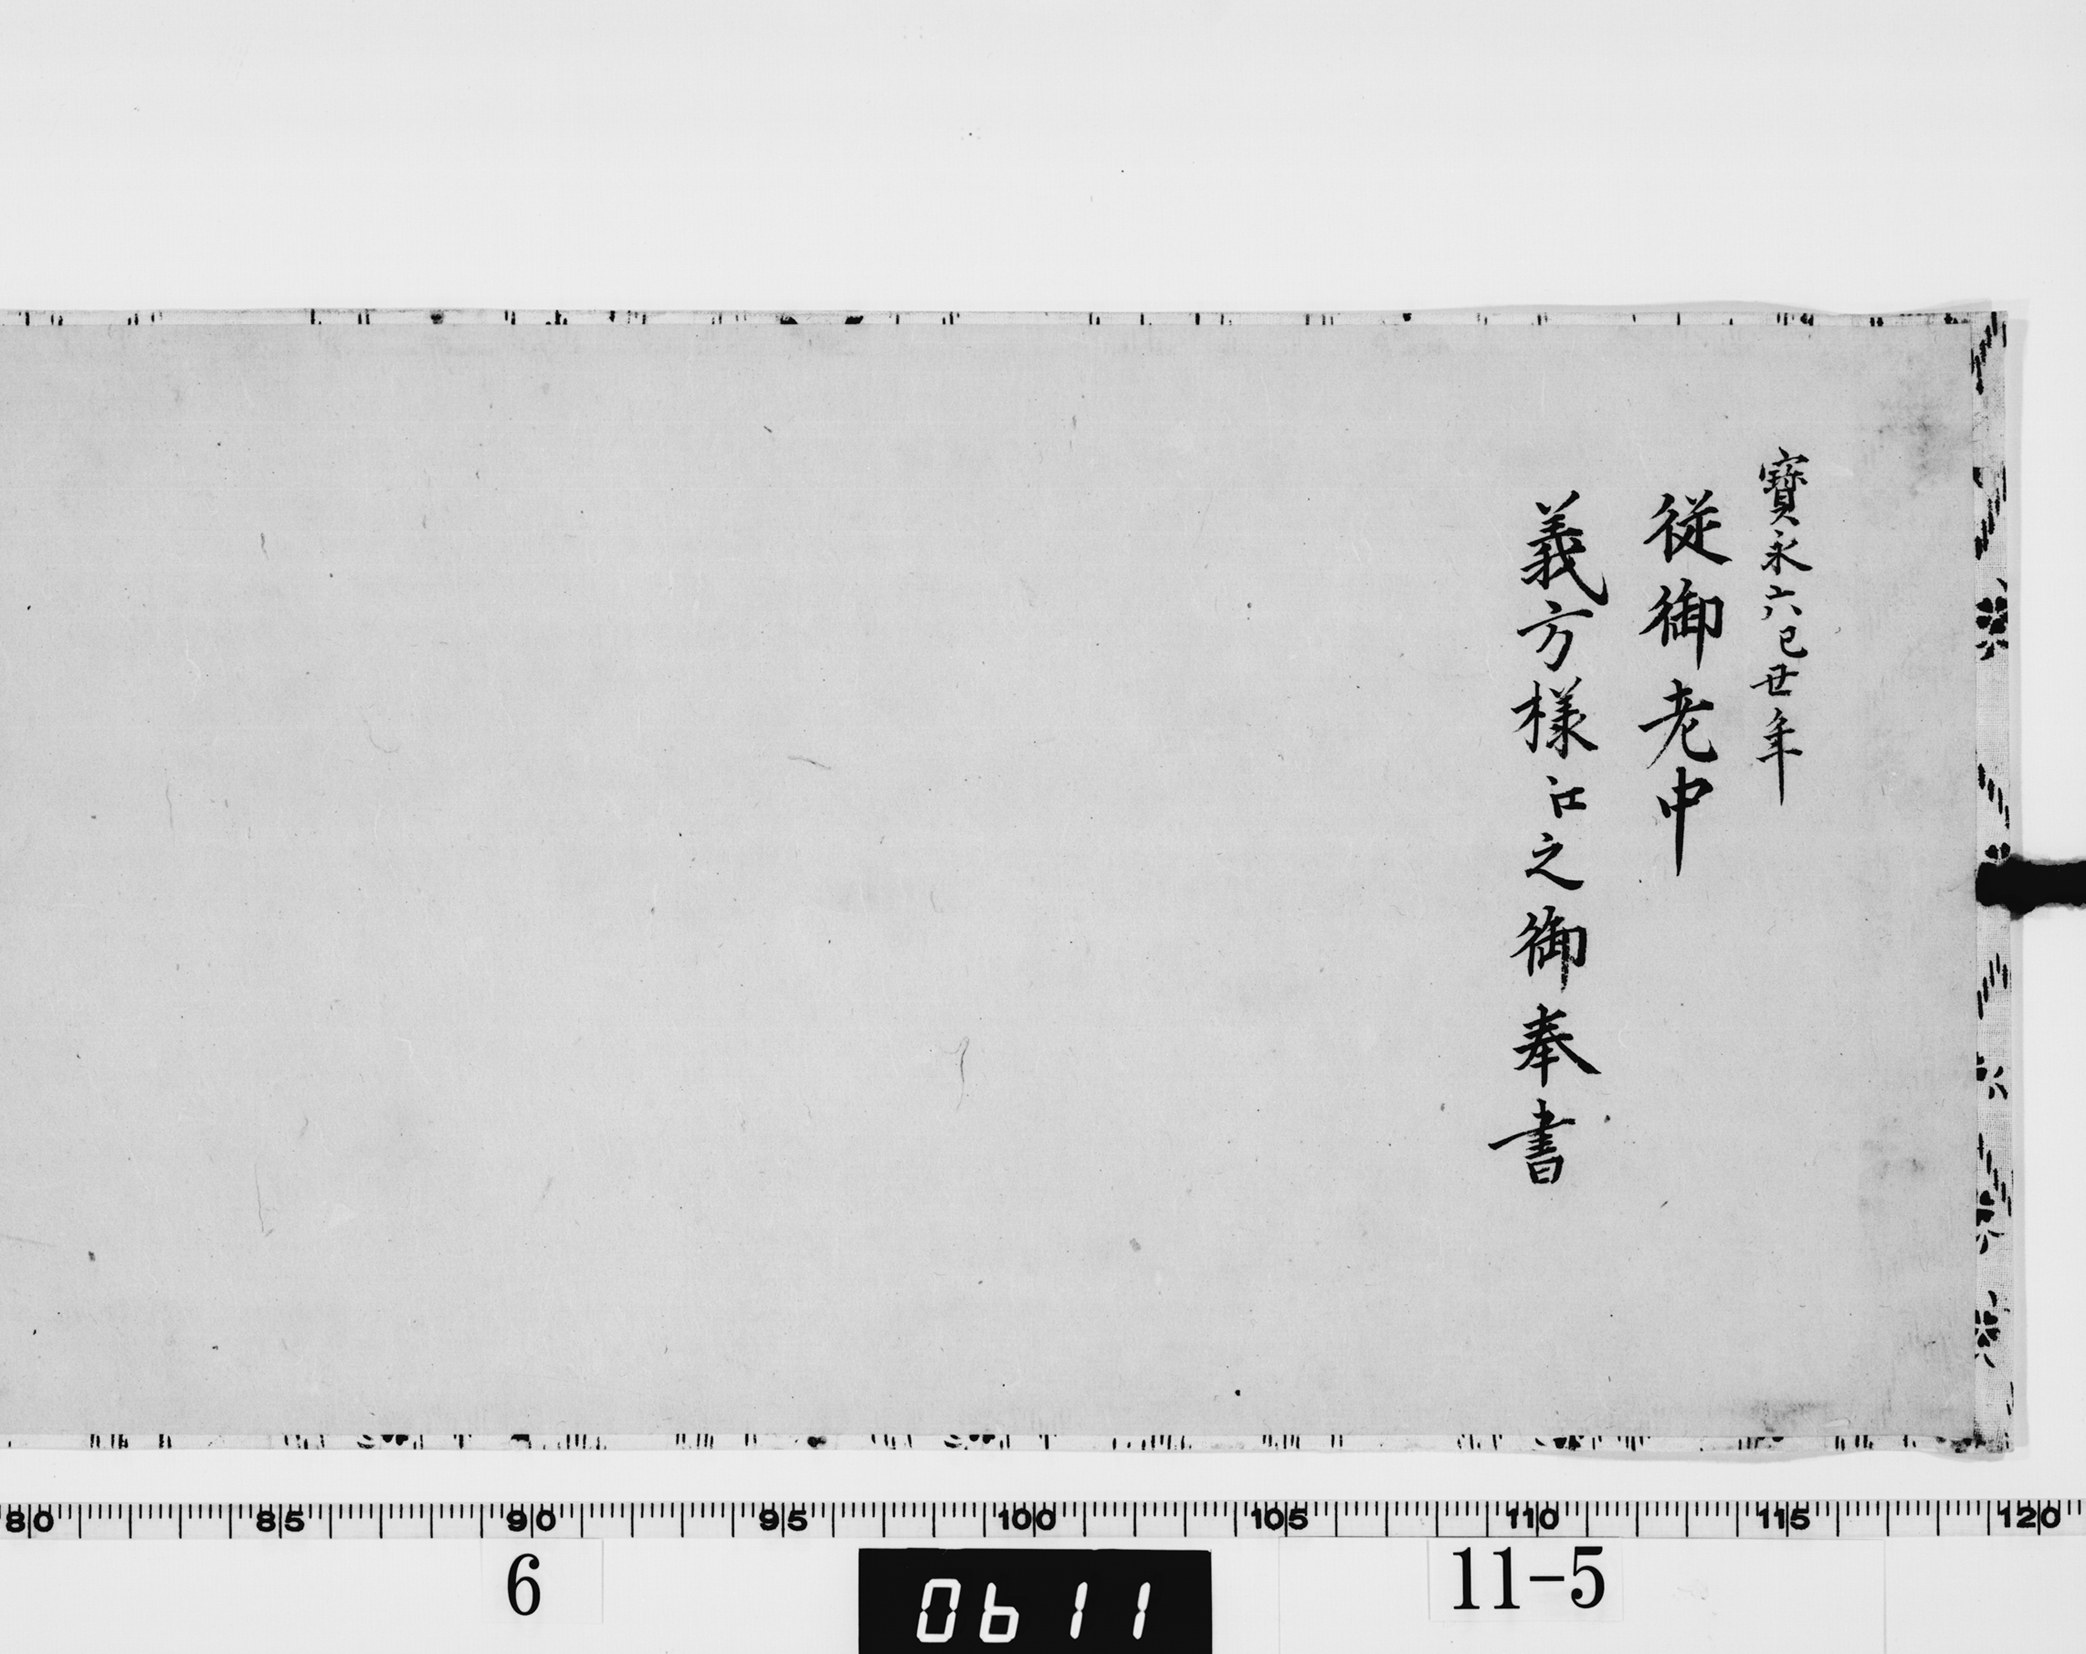 寳永六己丑年
従御老中
義方様江之御奉書
80 85 90 95 100 105 110 115 120
6
0611
11-5